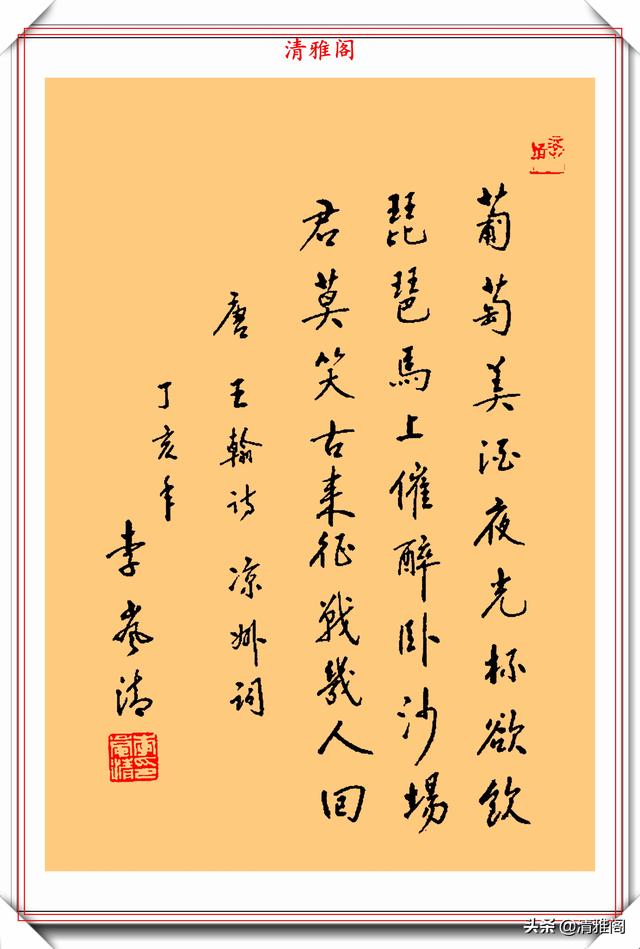 清雅阁
葡萄美酒夜光杯欲飲
琵琶馬上催醉卧沙場
君莫笑古来征戰幾人回
唐王翰诗凉州词
丁亥年
李岚清
头条 @清雅阁